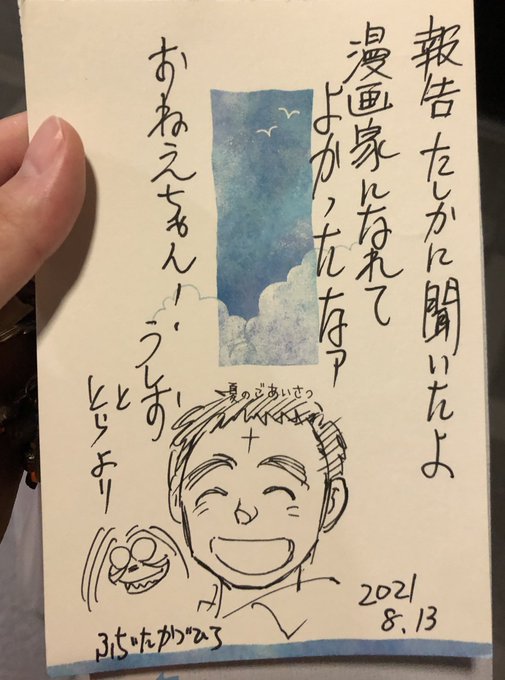 報告 たしかに聞いたよ
漫画家になれて
よかったなァ
おねえちゃん!
うしお
と
とらより
夏のごあいさつ
2021
8.13
ふじたかづひろ